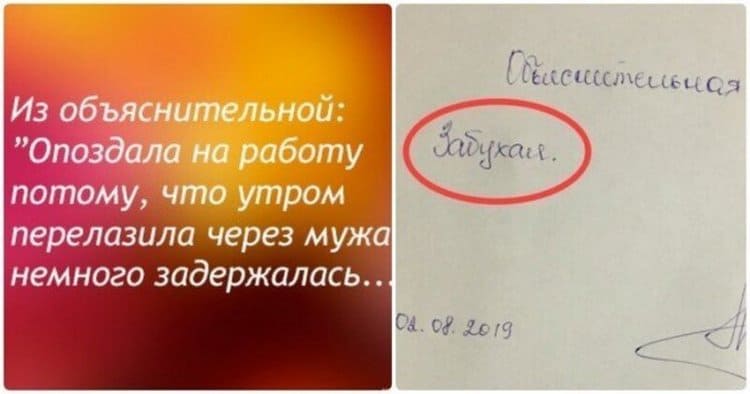 Из объяснительной:
”Опоздала на работу
потому, что утром
перелазила через мужа
немного задержалась...
Объяснительная
Забухал.
02.08.2019